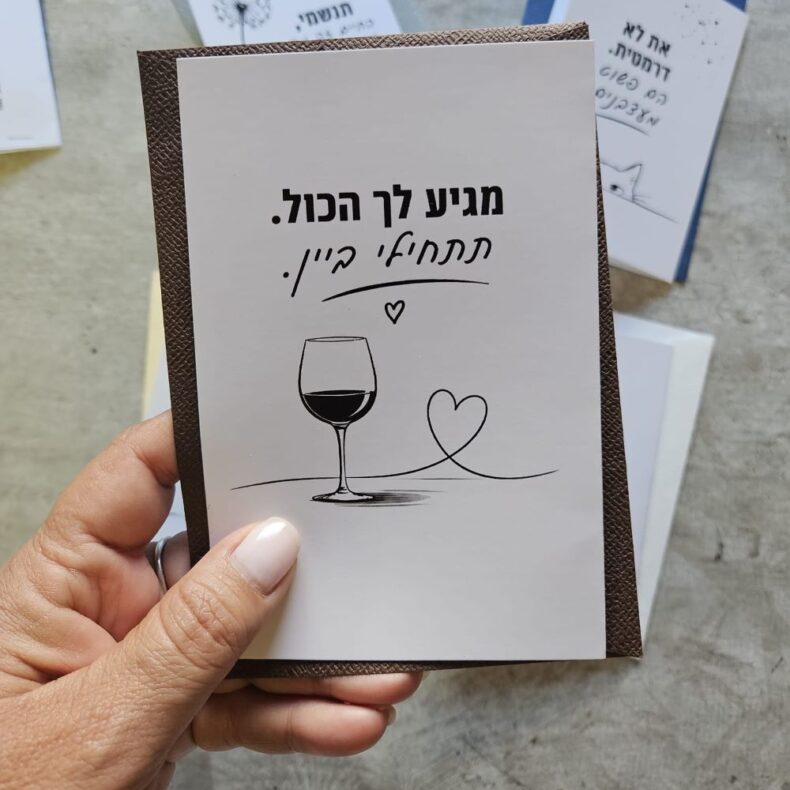 מגיע לך הכול.
תתחילי ביין.
תנשמי,
את לא
דרמטית.
הם פשוט
מעצבנים